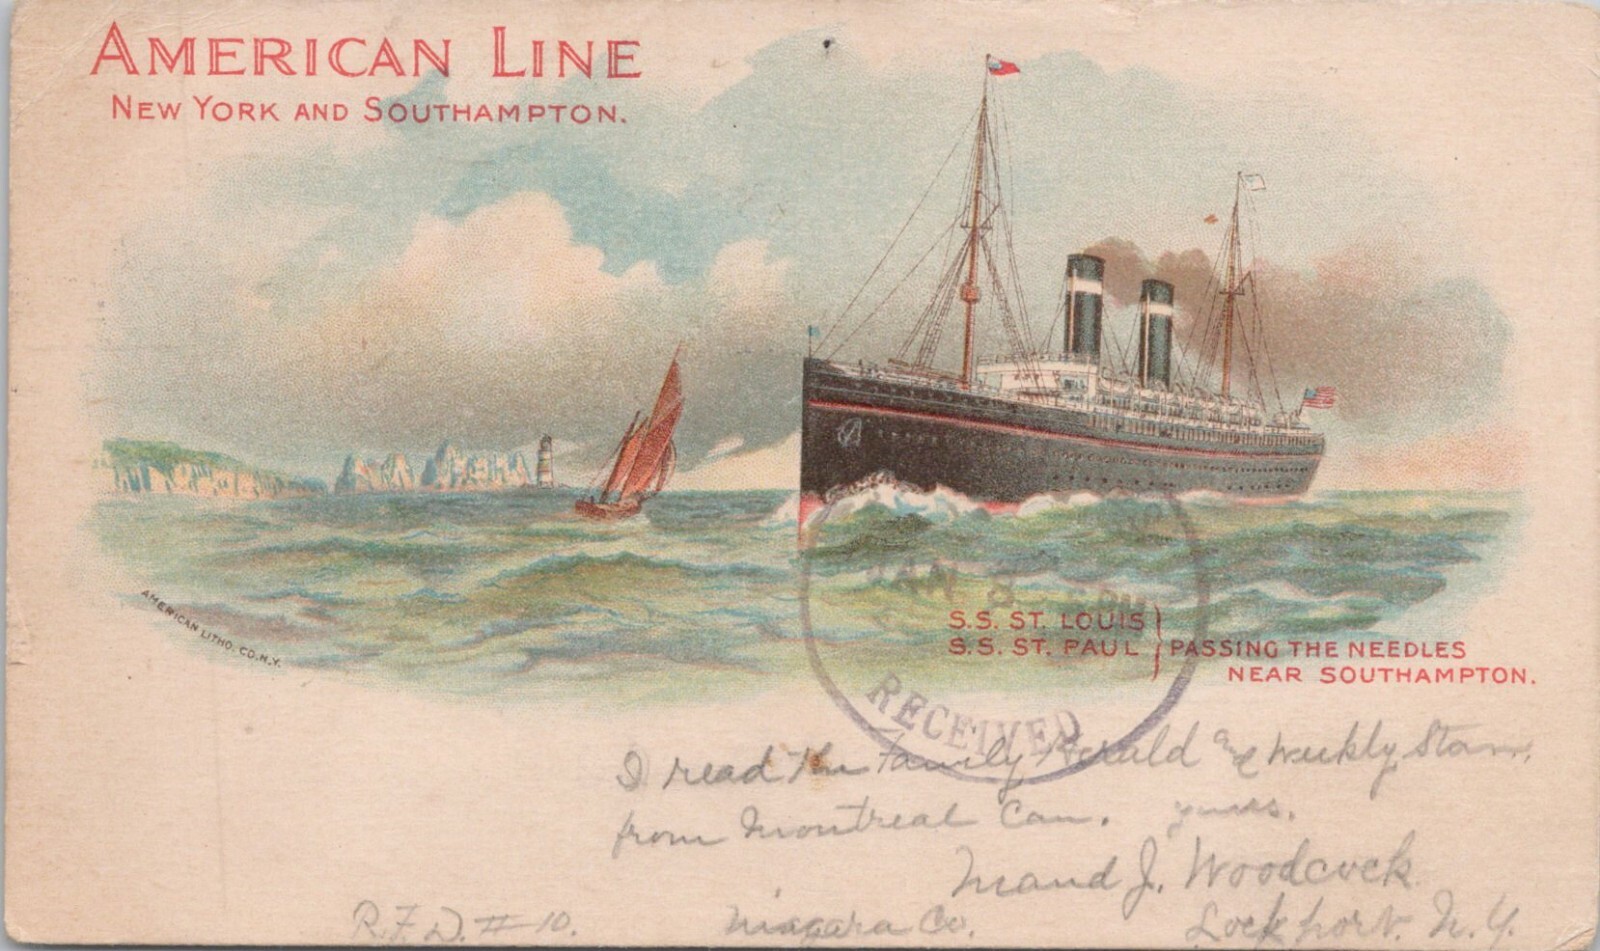 AMERICAN LINE
NEW YORK AND SOUTHAMPTON.
AMERICAN LITHO. CO. N.Y.
JAN 8
S.S. ST. LOUIS
S.S. ST. PAUL } PASSING THE NEEDLES
NEAR SOUTHAMPTON.
RECEIVED
I read the Family Herald and Weekly Star,
from Montreal Can. yours.
Maud J. Woodcock
R.F.D. #10. Niagara Co. Lockport. N.Y.